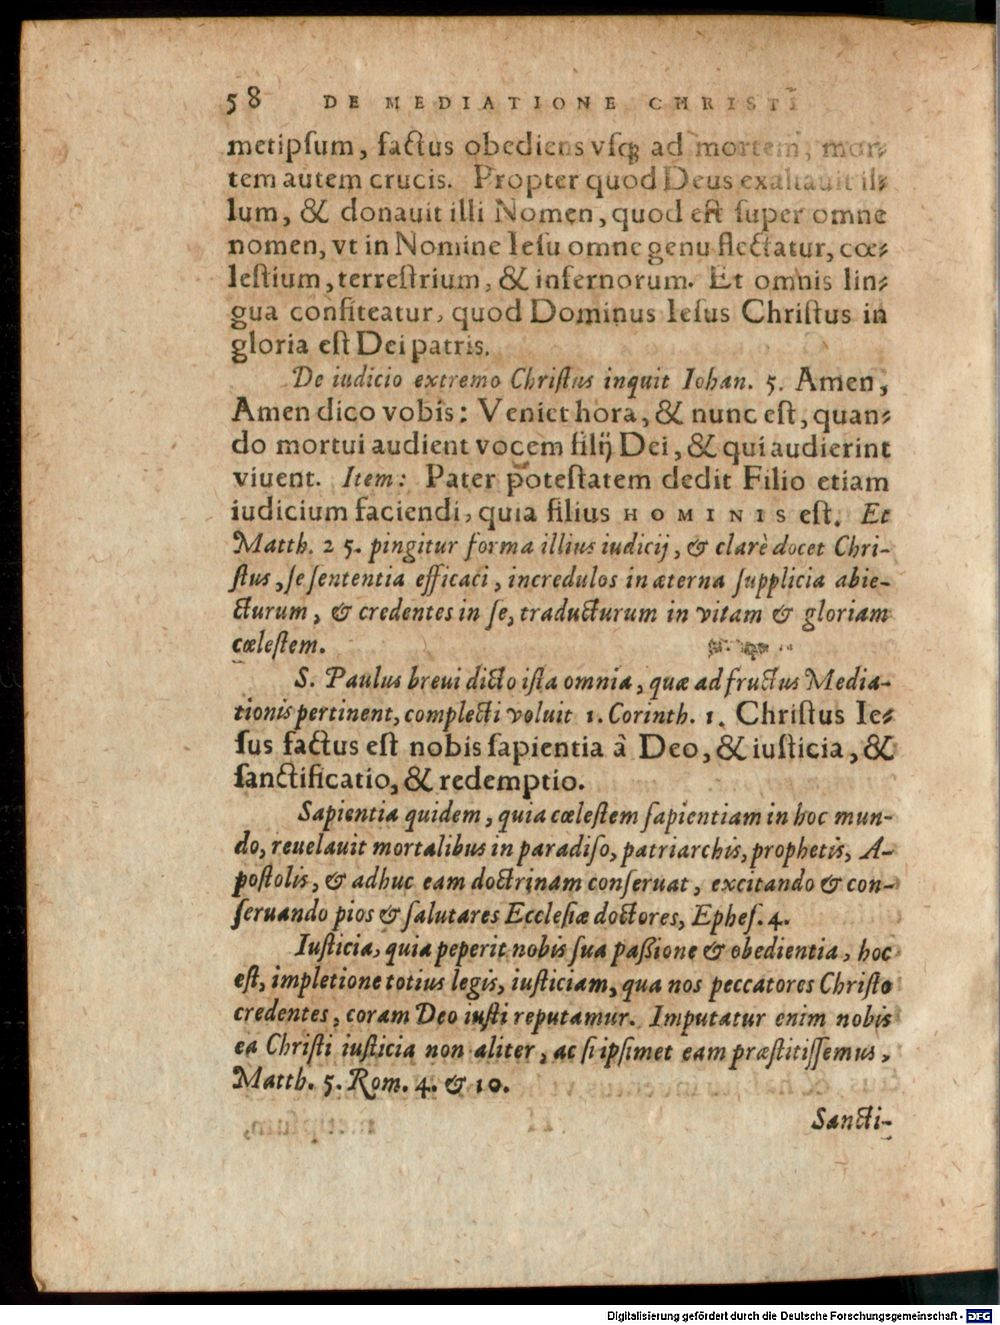 58 DE MEDIATIONE CHRISTI
metipſum, factus obediens vſq; ad mortem, mor⸗
tem autem crucis. Propter quod Deus exaltauit il⸗
lum, & donauit illi Nomen, quod eſt ſuper omne
nomen, vt in Nomine Ieſu omne genu flectatur, cœ⸗
leſtium, terreſtrium, & infernorum. Et omnis lin⸗
gua confiteatur, quod Dominus Ieſus Chriſtus in
gloria eſt Dei patris.
De iudicio extremo Chriſtus inquit Iohan. 5. Amen,
Amen dico vobis: Veniet hora, & nunc eſt, quan⸗
do mortui audient vocem filij Dei, & qui audierint
viuent. Item: Pater poteſtatem dedit Filio etiam
iudicium faciendi, quia filius HOMINIS eſt. Et
Matth. 25. pingitur forma illius iudicij, & clarè docet Chri-
ſtus, ſe ſententia efficaci, incredulos in æterna ſupplicia abie-
cturum, & credentes in ſe, traducturum in vitam & gloriam
cœleſtem.
S. Paulus breui dicto iſta omnia, quæ ad fructus Media-
tionis pertinent, complecti voluit 1. Corinth. 1. Chriſtus Ie⸗
ſus factus eſt nobis ſapientia à Deo, & iuſticia, &
ſanctificatio, & redemptio.
Sapientia quidem, quia cœleſtem ſapientiam in hoc mun-
do, reuelauit mortalibus in paradiſo, patriarchis, prophetis, A-
poſtolis, & adhuc eam doctrinam conſeruat, excitando & con-
ſeruando pios & ſalutares Eccleſiæ doctores, Epheſ. 4.
Iuſticia, quia peperit nobis ſua paßione & obedientia, hoc
eſt, impletione totius legis, iuſticiam, qua nos peccatores Chriſto
credentes, coram Deo iuſti reputamur. Imputatur enim nobis
ea Chriſti iuſticia non aliter, ac ſi ipſimet eam præſtitiſſemus,
Matth. 5. Rom. 4. & 10.
Sancti-
Digitalisierung gefördert durch die Deutsche Forschungsgemeinschaft - DFG